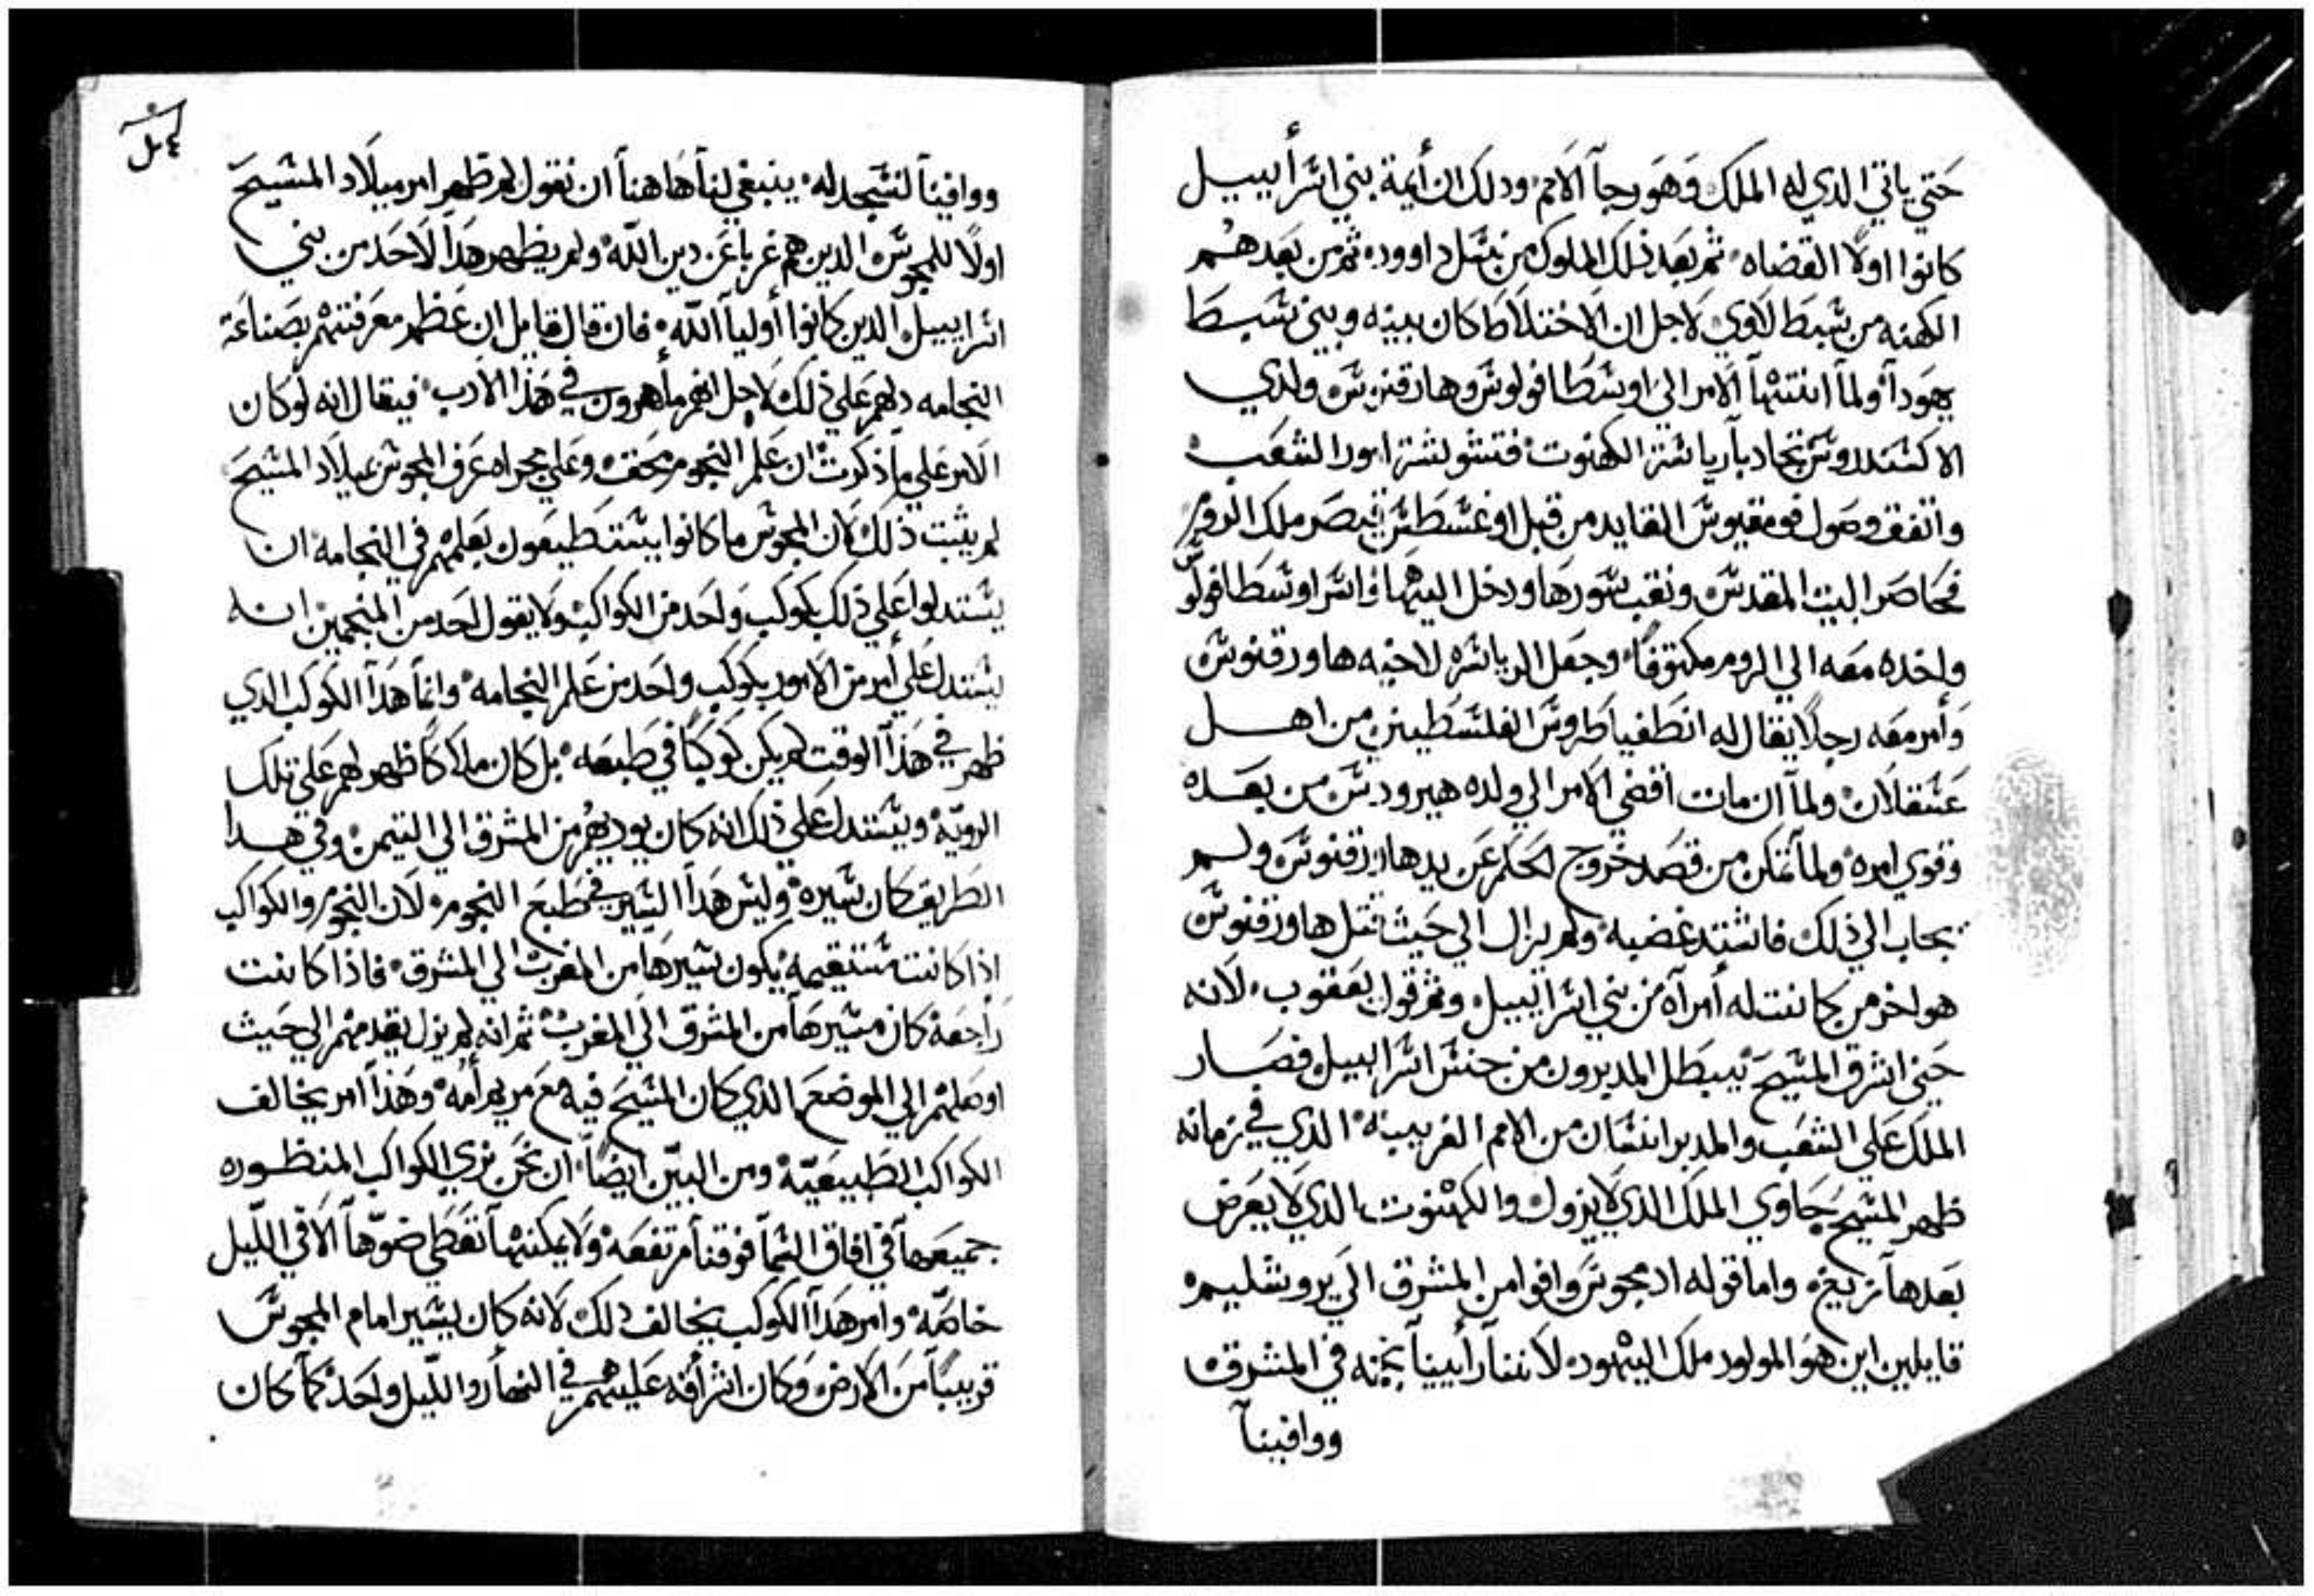 حتي ياتي الدي له الملك وهو رجآ الامم ودلك ان أيمة بني اسرأييل
كانوا اولا القضاه ثم بعد ذلك الملوك من نسل داوود ثم من بعدهم
الكهنه من سبط لاوي لاجل ان الاختلاط كان بينه وبين سبط
يهودا ولمآ انتهآ الامر الي اوسطافولوس وهارقنوس ولدي
الاكسندروس تجادبآ رياسة الكهنوت فتشوشة امور الشعب
واتفق وصول فومقيوس القايد من قبل اوغسطس قيصر ملك الروم
فحاصر البيت المقدس ونقب سورها ودخل اليها واسر اوسطافولوس
واخده معه الي الروم مكتوفا وجعل الرياسه لاخيه هاورقنوس
وأمر معه رجلا يقال له انطفياطروس الفلسطيني من اهل
عسقلان ولمآ ان مات افضي الامر الي ولده هيرودس من بعده
وقوي امره ولمآ تمكن من قصد خروج الحكم عن يد هاورقنوس ولم
يجاب الي ذلك فاشتد غضبه ولم يزال الي حيث قتل هاورقنوس
هو اخر من كانت له أمرآه من بني اسراييل وتم قول يعقوب لانه
حين اشرق المسيح يبطل المدبرون من جنس اسراييل فصار
الملك علي الشعب والمدبر انسان من الامم الغريبه الذي في زمانه
ظهر المسيح حاوي الملك الذي لا يزول والكهنوت الذي لا يعرض
بعدها زيغ واما قوله اد مجوس وافوا من المشرق الي يروشليم
قايلين اين هو المولود ملك اليهود لاننا رأيينآ نجمه في المشرق
ووافينآ
ووافينآ لنسجد له ينبغي لنآ هاهنآ ان نقول لم ظهر امر ميلاد المسيح
اولا للمجوس الدين هم غربا عن دين الله ولم يظهر هدا لاحد من بني
اسراييل الدين كانوا أوليآ الله فان قال قايل ان عظم معرفتهم بصناعة
النجامه دلهم علي ذلك لاجل انهم مأهرون في هذا الادب فيقال انه لو كان
الامر علي ما ذكرت ان علم النجوم محقه وعلي مجراه عرف المجوس بميلاد المسيح
لم يثبت ذلك لان المجوس ما كانوا يستطيعون بعلمهم في النجامه ان
يستدلوا علي ذلك بكوكب واحد من الكواكب ولا يقول احد من المنجمين انه
يستدل علي أمر من الامور بكوكب واحد من علم النجامه وانمآ هدا الكوكب الدي
ظهر في هذآ الوقت لم يكن كوكبا في طبعه بل كان ملاكا ظهر لهم علي تلك
الرويه ويستدل علي ذلك انه كان يوديهم من المشرق الي التيمن وفي هدا
الطريق كان سيره وليس هدا السير في طبع النجوم لان النجوم والكواكب
اذا كانت مستقيمه يكون سيرها من المغرب الي المشرق فاذا كانت
راجعه كان مسيرها من المشرق الي المغرب ثم انه لم يزل يقدمهم الي حيث
اوصلهم الي الموضع الدي كان المسيح فيه مع مريم أمه وهذا امر يخالف
الكواكب الطبيعيه ومن البين ايضا ان نحن نري الكواكب المنظوره
جميعها في افاق السمآ فوقنا مرتفعه ولا يمكنهآ تعطي ضوها الا في الليل
خاصه وامر هدآ الكوكب يخالف دلك لانه كان يسير امام المجوس
قريبا من الارض وكان اشراقه عليهم في النهار والليل واحد كما كان